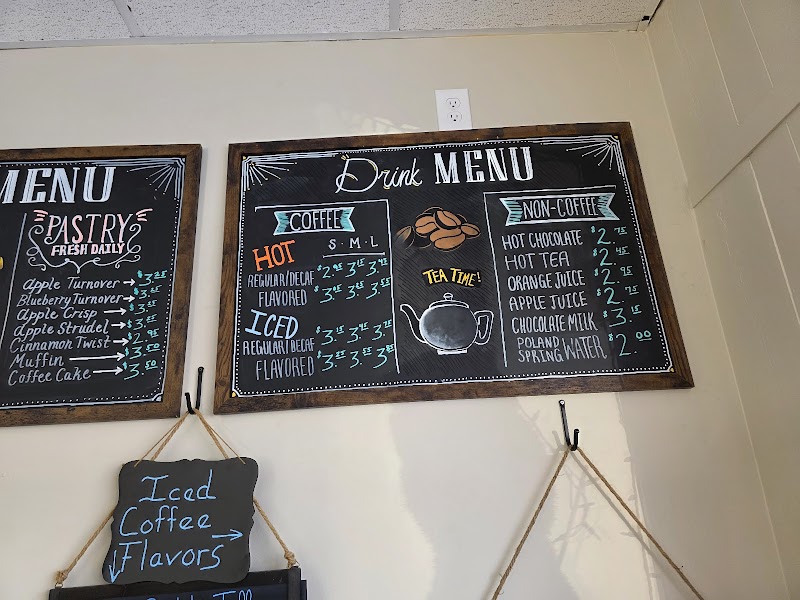 MENU
PASTRY
FRESH DAILY
Apple Turnover → $3.25
Blueberry Turnover →
Apple Crisp →
Apple Strudel →
Cinnamon Twist → $2.95
Muffin → $3.50
Coffee Cake → $3.50
Drink MENU
COFFEE
HOT S · M · L
REGULAR/DECAF
FLAVORED
ICED
REGULAR/DECAF
FLAVORED
TEA TIME!
NON-COFFEE
HOT CHOCOLATE $2.75
HOT TEA $2.45
ORANGE JUICE $2.95
APPLE JUICE $2.75
CHOCOLATE MILK $3.15
POLAND SPRING WATER $2.00
Iced
Coffee →
↓Flavors